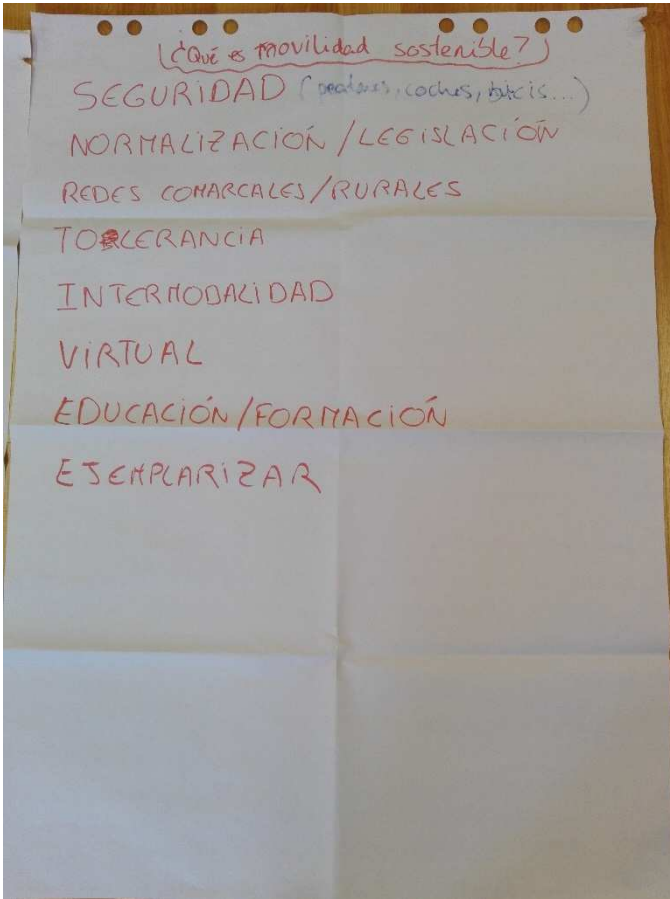 ¿Qué es movilidad sostenible?
SEGURIDAD (peatones, coches, bicis...)
NORMALIZACIÓN/LEGISLACIÓN
REDES COMARCALES/RURALES
TOLERANCIA
INTERMODALIDAD
VIRTUAL
EDUCACIÓN/FORMACIÓN
EJEMPLARIZAR